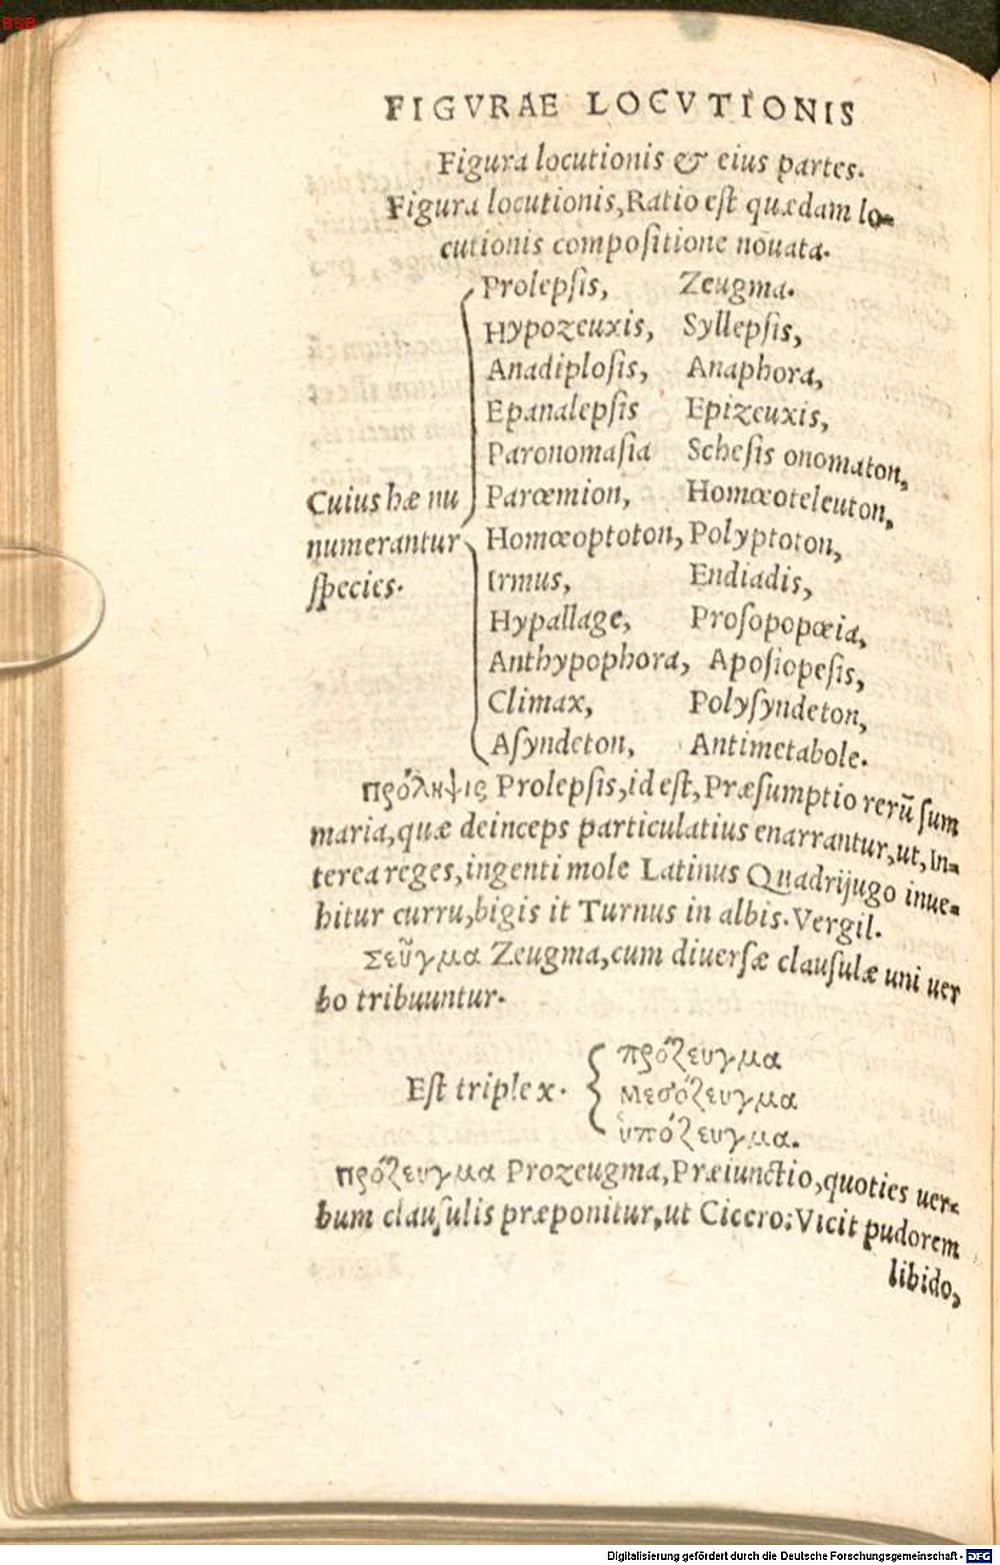 BSB
FIGVRAE LOCVTIONIS
Figura locutionis & eius partes.
Figura locutionis, Ratio est quædam lo-
cutionis compositione nouata.
Prolepsis, Zeugma.
Hypozeuxis, Syllepsis,
Anadiplosis, Anaphora,
Epanalepsis Epizeuxis,
Paronomasia Schesis onomaton,
Cuius hæ nu Parœmion, Homœoteleuton,
numerantur Homœoptoton, Polyptoton,
species. Irmus, Endiadis,
Hypallage, Prosopopœia,
Anthypophora, Aposiopesis,
Climax, Polysyndeton,
Asyndeton, Antimetabole.
πρόληψις Prolepsis, id est, Præsumptio rerū sum
maria, quæ deinceps particulatius enarrantur, ut, In-
terea reges, ingenti mole Latinus Quadrijugo inue-
hitur curru, bigis it Turnus in albis. Vergil.
Σεῦγμα Zeugma, cum diuersæ clausulæ uni uer
bo tribuuntur.
πρόζευγμα
Est triplex. μεσόζευγμα
ὑπόζευγμα.
πρόζευγμα Prozeugma, Præiunctio, quoties uer-
bum clausulis præponitur, ut Cicero: Vicit pudorem
libido,
Digitalisierung gefördert durch die Deutsche Forschungsgemeinschaft - DFG